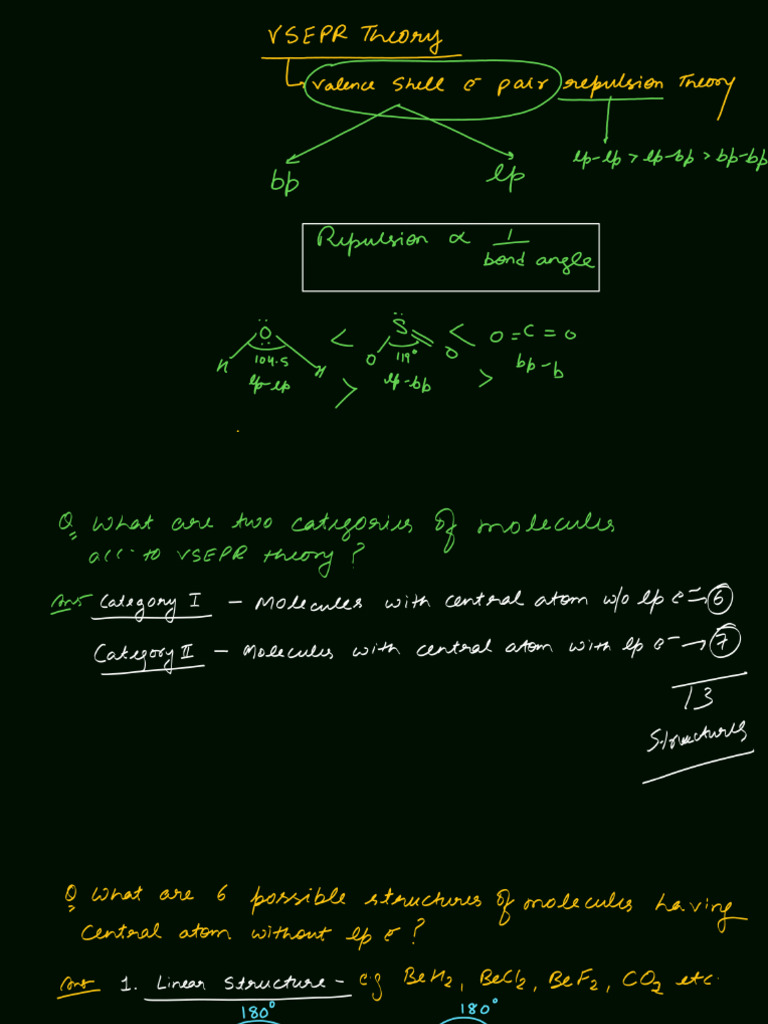 VSEPR Theory
Valence Shell e⁻ pair repulsion Theory
lp-lp > lp-bp > bp-bp
bp lp
Repulsion ∝ 1/bond angle
O < S < O=C=O
H 104.5 H O 119° O
lp-lp > lp-bp > bp-b
Q What are two categories of molecules
acc. to VSEPR theory?
Ans Category I - Molecules with central atom w/o lp e⁻ = 6
Category II - Molecules with central atom with lp e⁻ → 7
13
Structures
Q What are 6 possible structures of molecules having
central atom without lp e⁻?
Ans 1. Linear Structure - e.g BeH₂, BeCl₂, BeF₂, CO₂ etc.
180° 180°